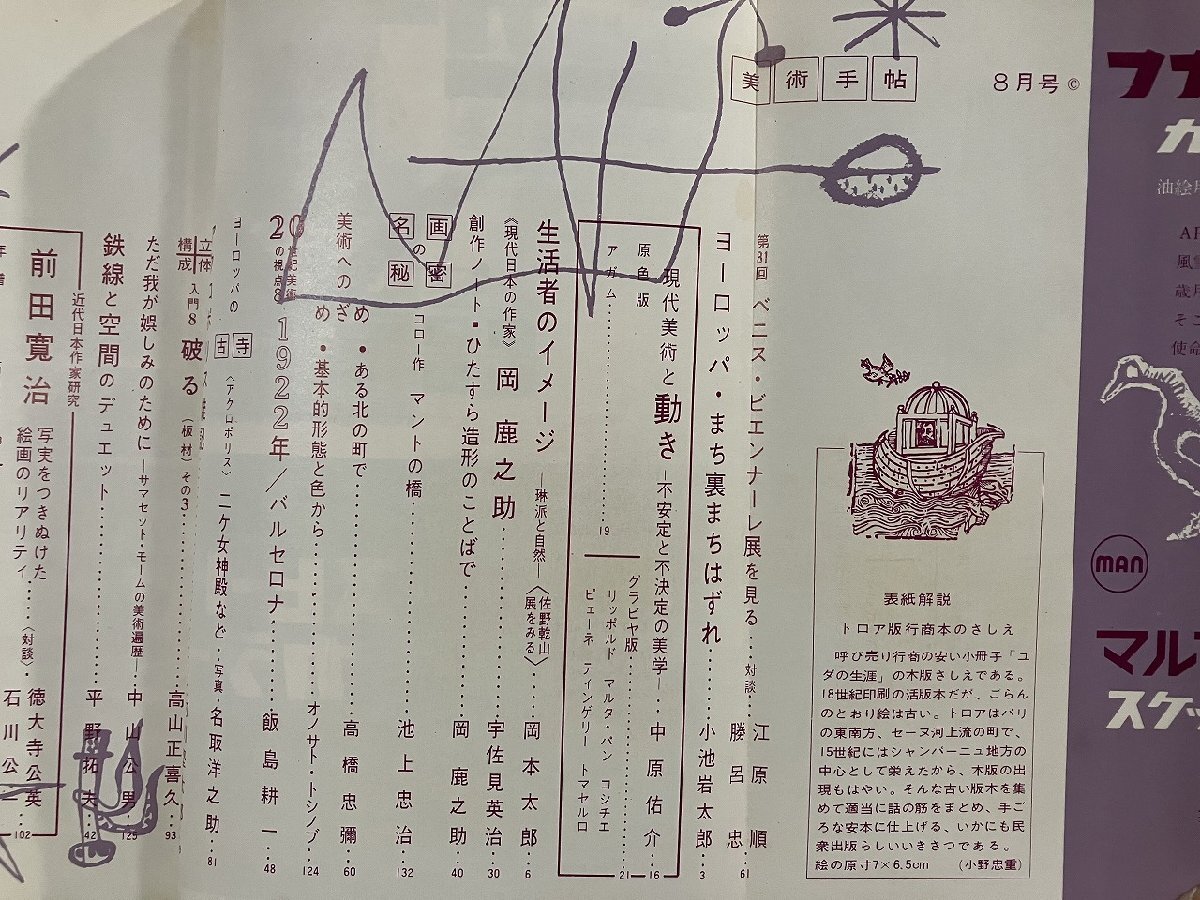 美術手帖
8月号 ©
フナ
カ
油絵
AP
風
歳月
そこ
使命
MAN
マル
スケッ
表紙解説
トロア版行商本のさしえ
呼び売り行商の安い小冊子「ユ
ダの生涯」の木版さしえである。
18世紀印刷の活版本だが、ごらん
のとおり絵は古い。トロアはパリ
の東南方、セーヌ河上流の町で、
15世紀にはシャンパーニュ地方の
中心として栄えたから、木版の出
現もはやい。そんな古い版木を集
めて適当に話の筋をまとめ、手ご
ろな安本に仕上げる、いかにも民
衆出版らしいいきさつである。
絵の原寸7×6.5cm (小野忠重)
第31回 ベニス・ビエンナーレ展を見る……対談 江原順 勝呂忠 61
ヨーロッパ・まち裏まちはずれ……小池岩太郎…3
現代美術と動き―不安定と不決定の美学―中原佑介…16
原色版
アガム……19
グラビヤ版……21
リッポルド マルタ・パン コシチエ
ビューネ ティンゲリー トマセルロ
生活者のイメージ―琳派と自然―〈佐野乾山展をみる〉…岡本太郎…6
《現代日本の作家》岡鹿之助……宇佐見英治…30
創作ノート・ひたすら造形のことばで……岡鹿之助…40
名画の秘密 コロー作 マントの橋……池上忠治…132
美術へのざめ・ある北の町で……高橋忠彌…60
め・基本的形態と色から……オノサト・トシノブ…124
20世紀美術の視点8 1922年/バルセロナ……飯島耕一…48
ヨーロッパの古寺〈アクロポリス〉ニケ女神殿など―写真 名取洋之助…81
立体構成入門8 破る(板材)その3……高山正喜久…93
ただ我が娯しみのために―サマセット・モームの美術遍歴―中山公男…125
鉄線と空間のデュエット……平野拓夫…42
近代日本作家研究
前田寛治 写実をつきぬけた
絵画のリアリティ……〈対談〉徳大寺公英
石川公一…102
年譜